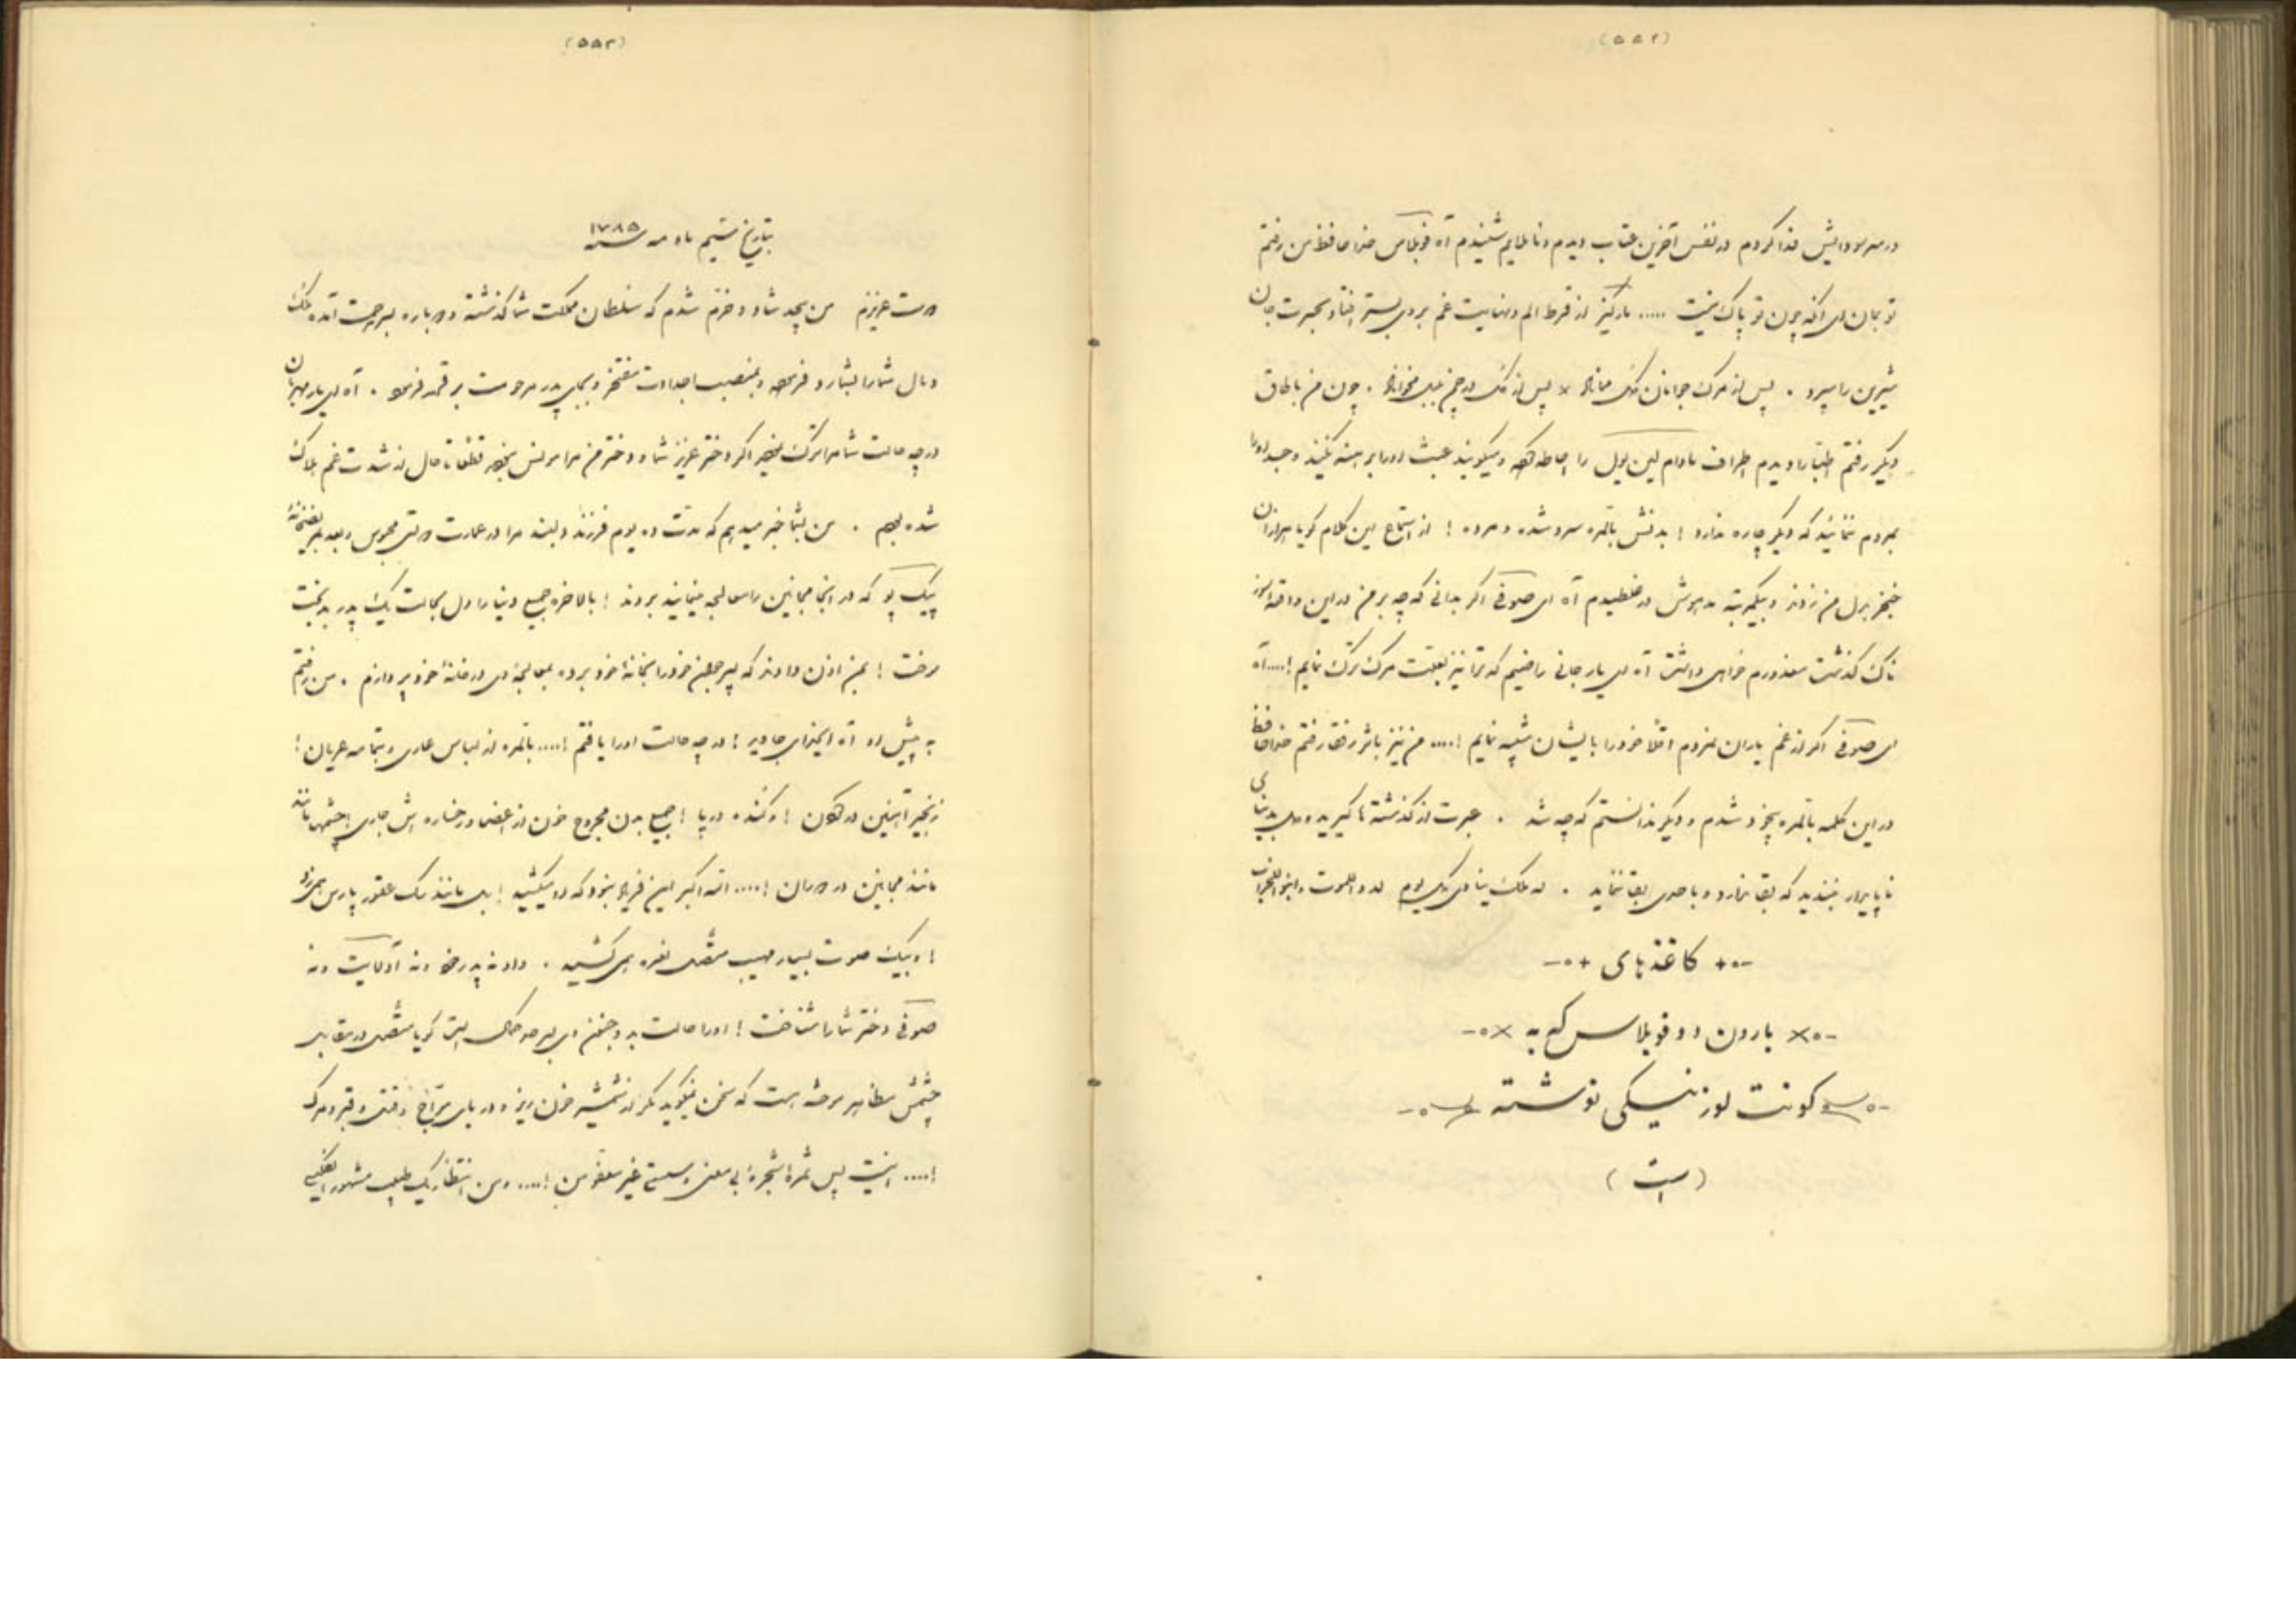 (۵۵۲)
در سر سودایش فدا کردم در نفس آخرین عتاب دیدم و ناملایم شنیدم آه فوبلاس خداحافظ من رفتم
تو بمان ای آنکه چون تو پاک نیست ..... مارکیز از فرط الم و نهایت غم بروی بستر افتاد و بحسرت جان
شیرین را سپرد . پس از مرگ جوانان گل مماناد × پس از گل در چمن بلبل مخواناد . چون من باطاق
دیگر رفتم اطبا را دیدم اطراف مادام لین یول را احاطه کرده و میگویند عبث او را برهنه نکنید و جسد او را
بمردم ننمائید که دیگر چاره ندارد ! بدنش بالمره سرد شده و مرده ! از استماع این کلام گویا هزاران
خنجر بدل من زدند و بیکمرتبه مدهوش در غلطیدم آه ای صوفی اگر بدانی که چه بر من در این واقعه
ناک گذشت معذورم خواهی داشت آه ای یار جانی راضیم که ترا نیز بعلت مرگ ترک نمایم !.... آه
ای صوفی اگر از غم یاران نمردم اقلا خود را بایشان شبیه نمایم !.... من نیز باثر رفقا رفتم خداحافظ
در این کلمه بالمره بیخود شدم و دیگر ندانستم که چه شد . عبرت از گذشته‌ها گیرید و دل بدنیای
ناپایدار نبندید که بقا ندارد و با احدی بقا ننماید . له ملک ینادی کل یوم لدوا للموت وابنوا للخراب
-۰+ کاغذهای +۰-
-۰× بارون دو فوبلاس که به ×۰-
کونت لوزنیسکی نوشته
(است)
(۵۵۳)
بتاریخ ششم ماه مه سنه ۱۷۸۵
دوست عزیزم من بیحد شاد و خرم شدم که سلطان مملکت شما گذشته دوباره بسر رحمت آمده ملک
و مال شما را بشما رد فرموده و بمنصب اجدادت مفتخر و بجای پدر مرحومت برقرار فرموده . آه ای یار مهربان
در چه حالت شما مرا ترک نمودید اگر دختر عزیز شما و دختر من مرا مونس نبودند قطعا تا حال از شدت غم هلاک
شده بودم . من بشما خبر میدهم که مدت ده یوم فرزند دلبند مرا در عمارت دولتی محبوس و بعد
پیک پو که در آنجا مجانین را معالجه مینمایند بردند ! بالاخره جمیع دنیا را دل بحالت یک پدر بدبخت
سوخت ! بمن اذن دادند که پسر مجنون خود را بخانه خود برده بمعالجه وی در خانه خود پردازم . من رفتم
به پیش او آه ای خدای جاوید ! در چه حالت او را یافتم !.... بالمره از لباس عاری و بتمامه عریان !
زنجیر آهنین در گردن ! و کنده در پا ! جمیع بدن مجروح خون از اعضا و رخساره‌اش جاری ! چشمها مانند
مانند مجانین در دوران !.... الله اکبر این فریاد نبود که او میکشید ! بل مانند سگ عقور پارس همی زد
! و بیک صوت بسیار مهیب متصل نعره همی کشید . و او نه پدر خود و نه آدلایت و نه
صوفی دختر شما را شناخت ! او را حالت بد و جنون وی بسرحد کمال است گویا متصل در مقابل
چشمش مظاهر موحشه است که سخن نمیگوید مگر از شمشیر خون‌ریز و دریای مواج و قتل و قبر و مرگ
!.... اینست پس ثمره شجره بی معنی و سستی غیر معفو من !.... و من انتظار یک طبیب مشهور انگلیسی